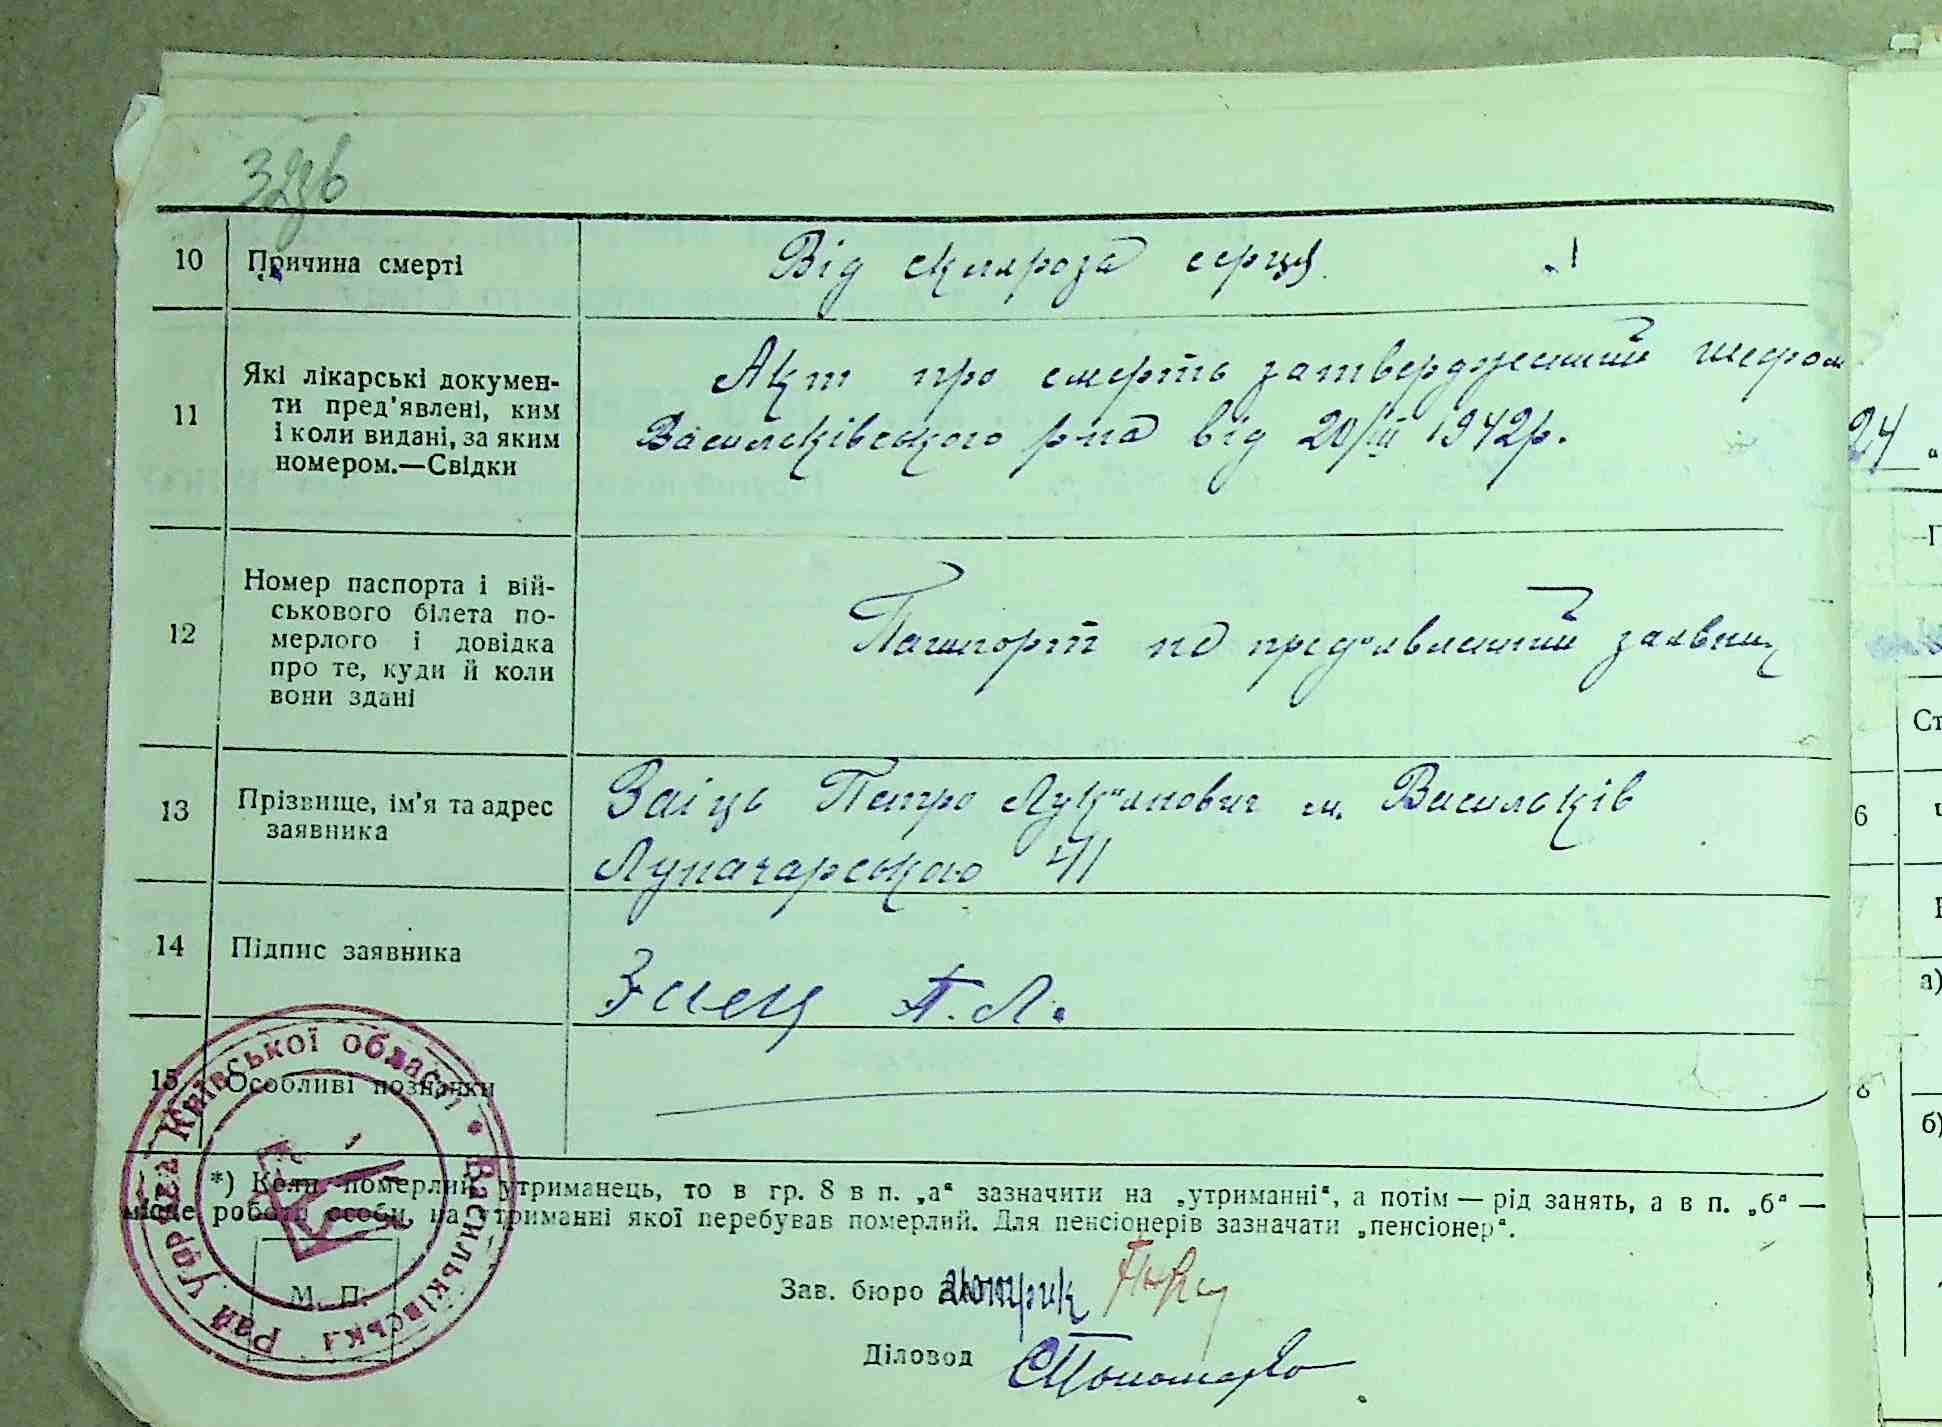 10 Причина смерті Від скляроза серця
11 Які лікарські докумен-
ти пред'явлені, ким
і коли видані, за яким
номером.—Свідки
Акт про смерть затверджений шефом
Васильківського р-на від 20/III 1942р.
12 Номер паспорта і вій-
ськового білета по-
мерлого і довідка
про те, куди й коли
вони здані
Пашпорт не пред'явлений заявник
13 Прізвище, ім'я та адрес
заявника
Заіць Петро Лук'янович м. Васильків
Луначарського 41
14 Підпис заявника Заец П. Л.
15 Особливі познаки
*) Коли померлий утриманець, то в гр. 8 в п. „а“ зазначити на „утриманні“, а потім — рід занять, а в п. „б“ —
місце роботи особи, на утриманні якої перебував померлий. Для пенсіонерів зазначати „пенсіонер“.
Васильківська Рай Управа Київської області
М. П.
Зав. бюро
Діловод
24
6
8
а)
б)